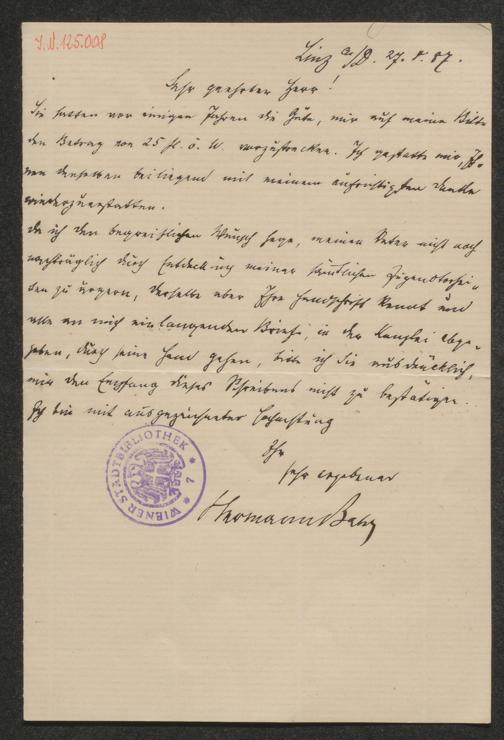 J.N. 125.008
Linz a/D. 27. 8. 87.
Sehr geehrter Herr!
Sie hatten vor einigen Jahren die Güte, mir auf meine Bitte
den Betrag von 25 fl. ö. W. vorzustrecken. Ich gestatte mir, Ih-
nen denselben beiliegend mit meinem aufrichtigsten Danke
wiederzuerstatten.
Da ich den begreiflichen Wunsch hege, meinen Vater nicht noch
nachträglich durch Entdeckung meiner sämtlichen Jugendthorhei-
ten zu ärgern, derselbe aber Ihre Handschrift kennt und
alle an mich einlangenden Briefe, in der Kanzlei abge-
geben, durch seine Hand gehen, bitte ich Sie ausdrücklich,
mir den Empfang dieses Schreibens nicht zu bestätigen.
Ich bin mit ausgezeichneter Hochachtung
Ihr
sehr ergebener
Hermann Bahr
WIENER STADTBIBLIOTHEK * 7 *